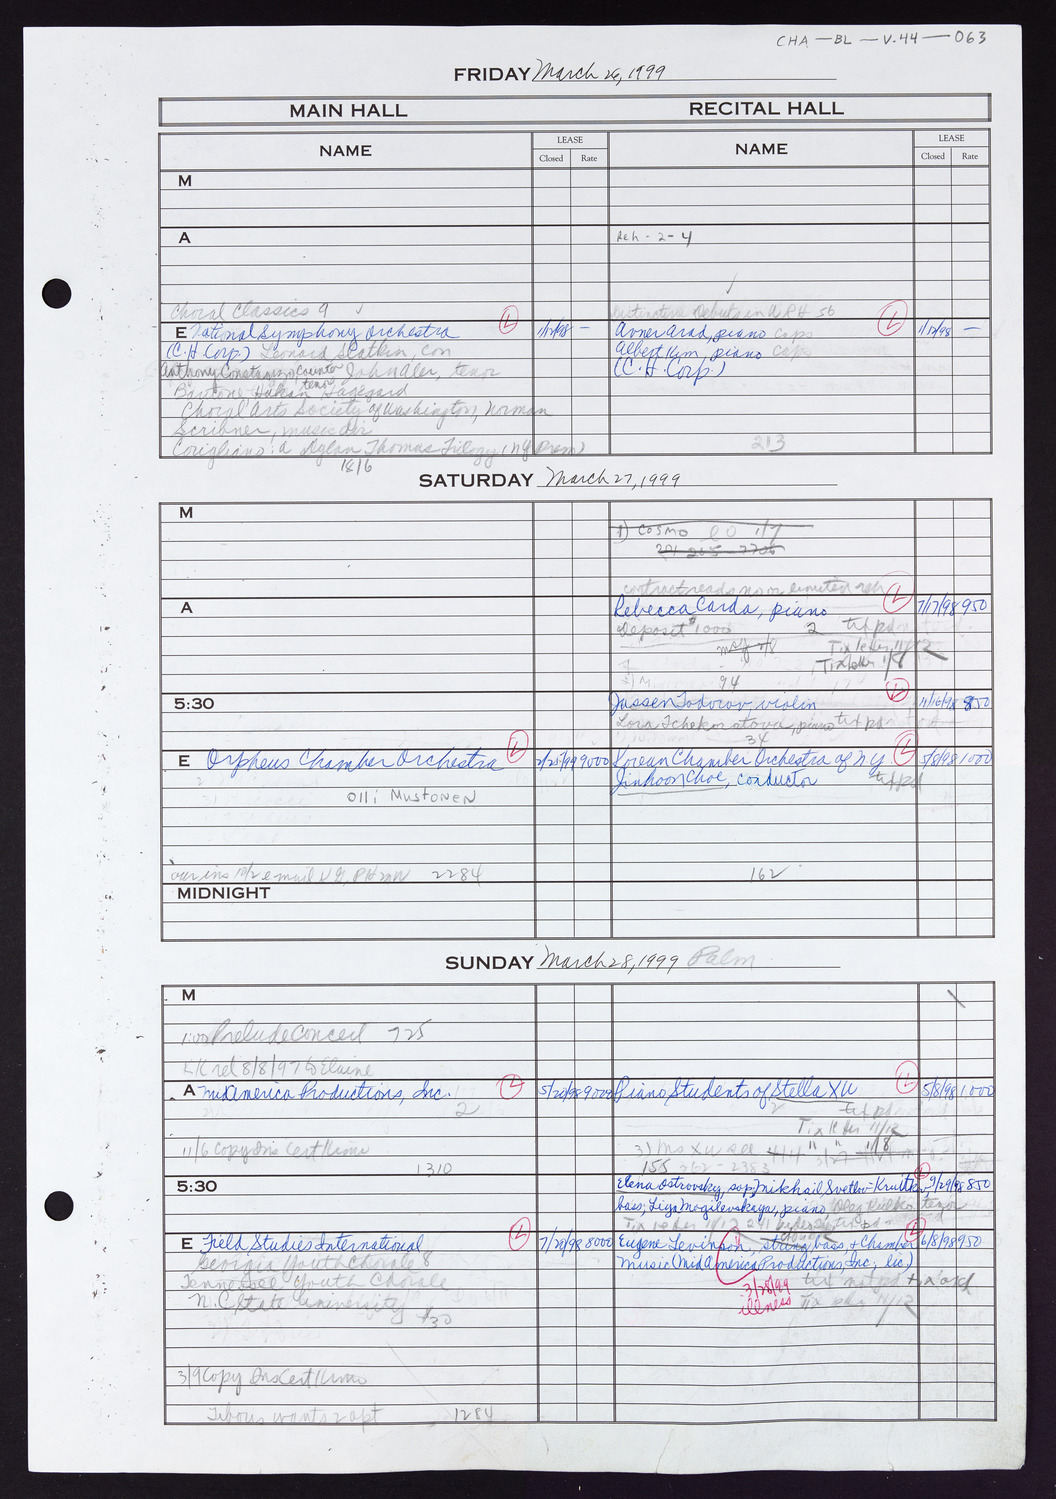 CHA — BL — V.44 — 063
FRIDAY March 26, 1999
MAIN HALL RECITAL HALL
NAME LEASE NAME LEASE
Closed Rate Closed Rate
M
A Reh - 2 - 4
Choral Classics 9 Debuts in WRH 56
E National Symphony Orchestra 1/12/98 — Avner Arad, piano Caps 1/12/98 —
(C.H. Corp.) Leonard Slatkin, con Albert Kim, piano Caps
Anthony Costanzo, Counter tenor John Aler, tenor (C.H. Corp.)
Baritone Hakan Hagegard
Choral Arts Society of Washington, Norman
Scribner, music dir
Corigliano: A Dylan Thomas Trilogy (NY Prem) 213
1816
SATURDAY March 27, 1999
M
1) COSMO 1/7
contract reads no or limited reh
A Rebecca Carda, piano 7/17/98 950
Deposit $1000 2 txt pd
msg 1/8 Tix letter 11/12
Tix letter 1/8
94
5:30 Jassen Todorov violin 11/16/98 850
Lora Tchekoratova, piano txt pd
34
E Orpheus Chamber Orchestra 9000 Korean Chamber Orchestra of NY 5/8/98 1000
Jinhoon Choe, conductor txt pd
Olli Mustonen
2284 162
MIDNIGHT
SUNDAY March 28, 1999 Palm
M
1:00 Prelude Concert 725
LK rel 8/8/97 to Elaine
A MidAmerica Productions, Inc. 5/20/98 9000 Piano Students of Stella Xu 5/8/98 1000
2 2 txt pd
Tix letter 11/12
11/6 Copy Ins Cert 3) Ms Xu 1/8
1310 155 362-2383
5:30 Elena Ostrovsky, sop; Mikhail Svetlov-Krutikov, 9/29/98 850
bass; Liya Mogilevskaya, piano, tenor
Tix letter 11/12
E Field Studies International 7/20/98 8000 Eugene Levinson, string bass + Chamber 6/8/98 950
Georgia Youth Chorale 8 Music (MidAmerica Productions, Inc.)
Tennessee Youth Chorale 3/28/99 txt not pd
N.C. State University illness Tix 11/12
430
3/9 Copy Ins Cert
wants 2 opt 1284